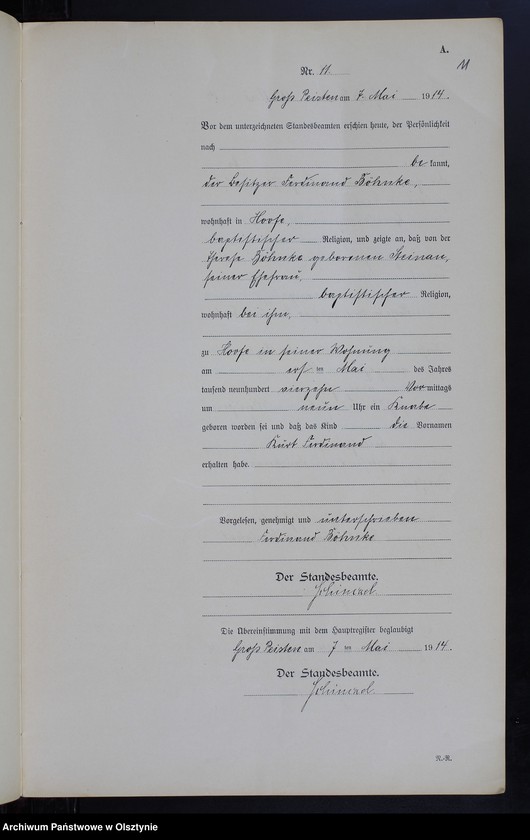 A.
11
Nr. 11
Groß Peisten am 7. Mai 1914.
Vor dem unterzeichneten Standesbeamten erschien heute, der Persönlichkeit
nach
be kannt,
der Besitzer Ferdinand Böhnke,
wohnhaft in Hoofe,
baptistischer Religion, und zeigte an, daß von der
Therese Böhnke geborenen Steinau,
seiner Ehefrau,
baptistischer Religion,
wohnhaft bei ihm,
zu Hoofe in seiner Wohnung
am ten Mai des Jahres
tausend neunhundert vierzehn Vor mittags
um neun Uhr ein Knabe
geboren worden sei und daß das Kind die Vornamen
Kurt Ferdinand
erhalten habe.
Vorgelesen, genehmigt und unterschrieben
Ferdinand Böhnke
Der Standesbeamte.
Die Übereinstimmung mit dem Hauptregister beglaubigt
Groß Peisten am 7 ten Mai 1914.
Der Standesbeamte.
N.-R.
Archiwum Państwowe w Olsztynie